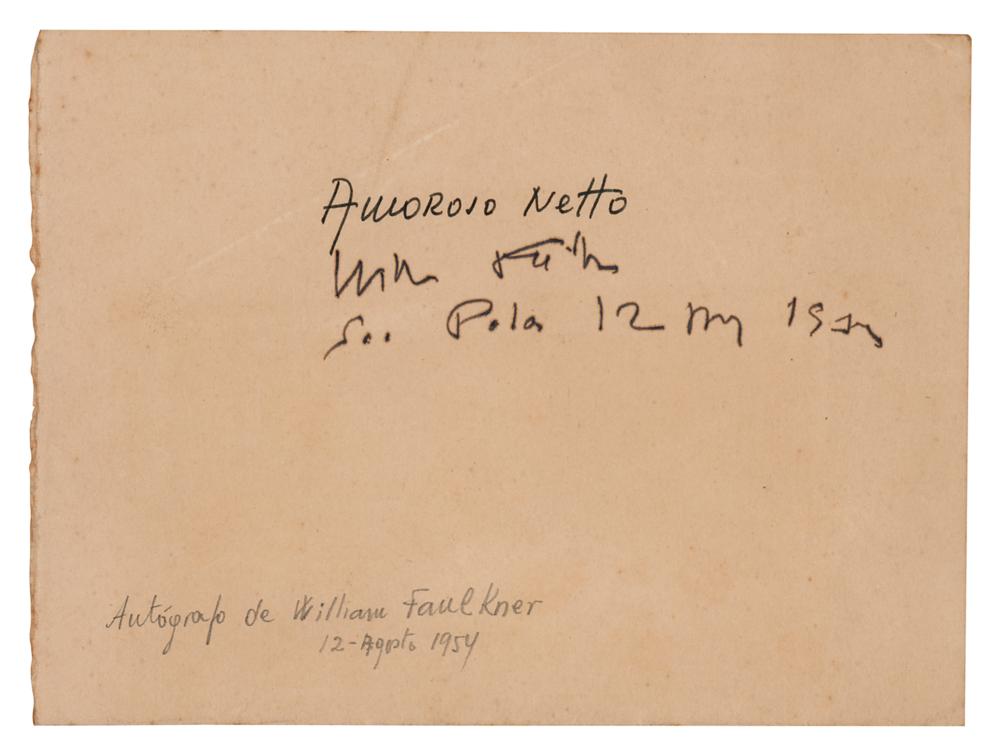 Amoroso Netto
William Faulkner
Sao Paulo 12 Aug 1954
Autógrafo de William Faulkner
12-Agosto 1954